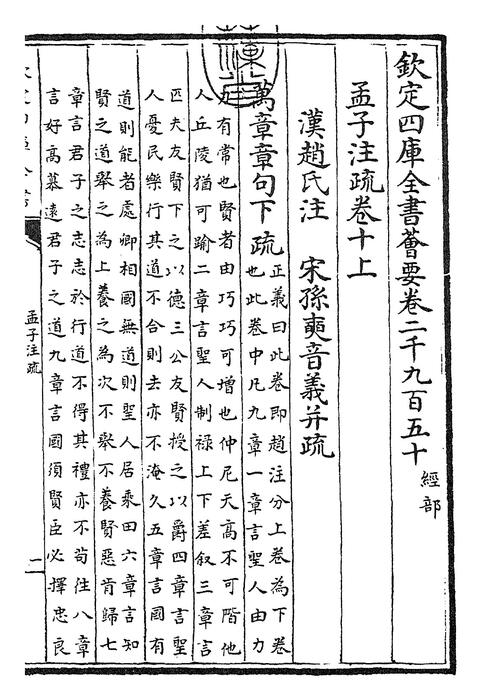 欽定四庫全書薈要卷二千九百五十 經部
孟子注疏卷十上
漢趙氏注 宋孫奭音義并疏
萬章章句下 疏 正義曰此卷即趙注分上卷為下卷
也此卷中凡九章一章言聖人由力
力有常也賢者由巧巧可增也仲尼天高不可階他
人丘陵猶可踰二章言聖人制祿上下差叙三章言
匹夫友賢下之以德三公友賢授之以爵四章言聖
人憂民樂行其道不合則去亦不淹久五章言國有
道則能者處卿相國無道則聖人居乘田六章言知
賢之道舉之為上養之為次不舉不養賢惡肯歸七
章言君子之志志於行道不得其禮亦不苟往八章
言好高慕遠君子之道九章言國須賢臣必擇忠良
孟子注疏